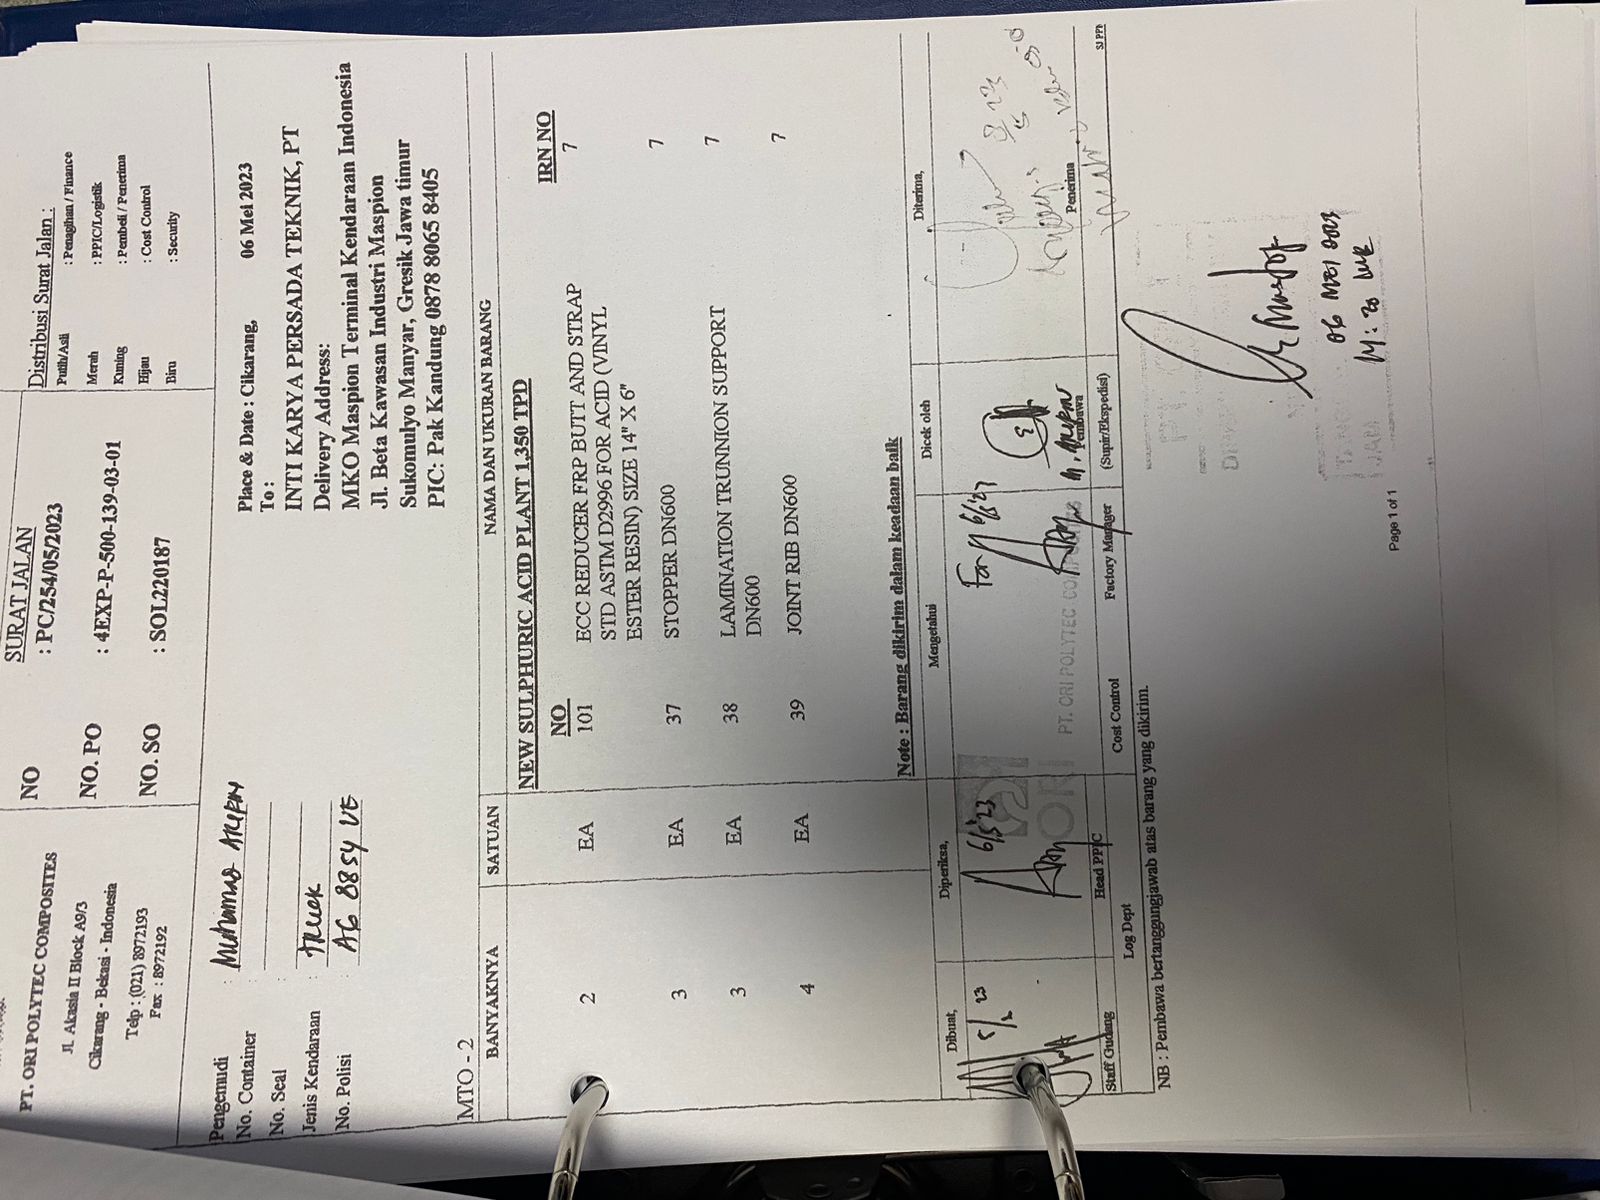 PT. ORI POLYTEC COMPOSITES
Jl. Akasia II Block A9/3
Cikarang - Bekasi - Indonesia
Telp : (021) 8972193
Fax : 8972192
SURAT JALAN
NO : PC/254/05/2023
NO. PO : 4EXP-P-500-139-03-01
NO. SO : SOL220187
Distribusi Surat Jalan :
Putih/Asli : Penagihan / Finance
Merah : PPIC/Logistik
Kuning : Pembeli / Penerima
Hijau : Cost Control
Biru : Security
Pengemudi : Muhamad Arifin
No. Container
No. Seal :
Jenis Kendaraan : Truck
No. Polisi : AG 8854 VE
Place & Date : Cikarang, 06 Mei 2023
To :
INTI KARYA PERSADA TEKNIK, PT
Delivery Address:
MKO Maspion Terminal Kendaraan Indonesia
Jl. Beta Kawasan Industri Maspion
Sukomulyo Manyar, Gresik Jawa timur
PIC: Pak Kandung 0878 8065 8405
MTO - 2
BANYAKNYA SATUAN NAMA DAN UKURAN BARANG
NEW SULPHURIC ACID PLANT 1,350 TPD
NO IRN NO
2 EA 101 ECC REDUCER FRP BUTT AND STRAP 7
STD ASTM D2996 FOR ACID (VINYL
ESTER RESIN) SIZE 14" X 6"
3 EA 37 STOPPER DN600 7
3 EA 38 LAMINATION TRUNNION SUPPORT 7
DN600
4 EA 39 JOINT RIB DN600 7
Note : Barang dikirim dalam keadaan baik
Dibuat, Diperiksa, Mengetahui Dicek oleh Diterima,
6/5'23
ORI PT. ORI POLYTEC COMPOSITES
Pembawa
Penerima
Staff Gudang Head PPIC Cost Control Factory Manager (Supir/Ekspedisi)
Log Dept
SJ PPR
NB : Pembawa bertanggungjawab atas barang yang dikirim.
06 MEI 2023
Page 1 of 1